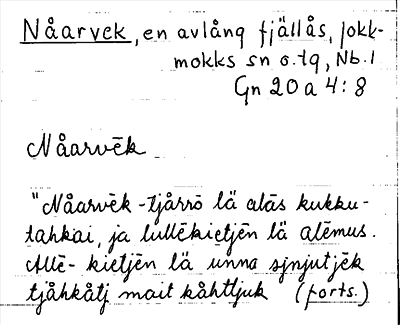 Nåarvek, en avlång fjällås, Jokk-
mokks sn o. tg, Nb. l
Gn 20 a 4:8
Nåarvēk
"Nåarvēk-tjårrō lä alās kukku-
tahkai, ja lullēkietjēn lä alēmus.
Allē-kietjēn lä unna sjnjutjēk
tjåhkåtj mait kåhttjuk (forts.)